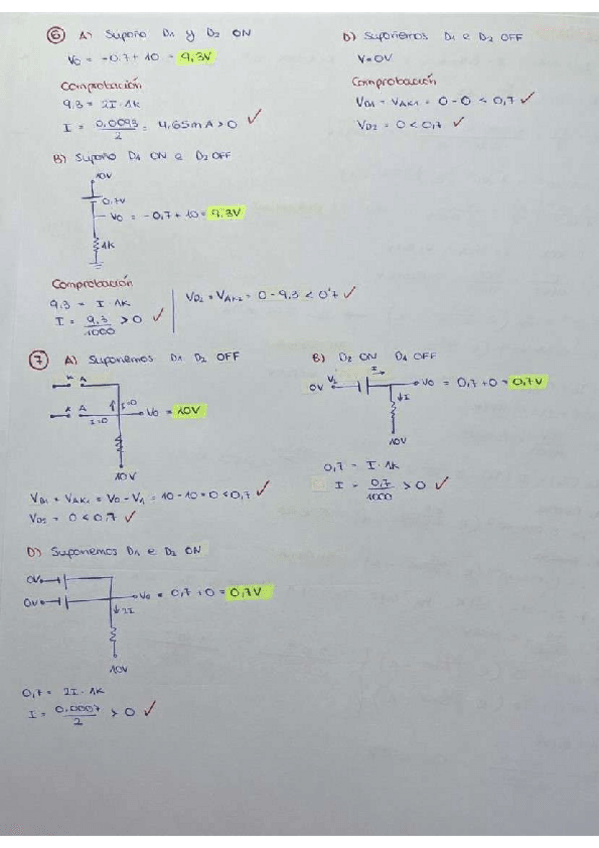 6 A) Supoño D1 y D2 ON
Vo = -0.7 + 10 = 9,3V
Comprobación
9.3 = 2I · 1k
I = 0.0093 / 2 = 4,65mA > 0 ✓
D) Supoñemos D1 e D2 OFF
V=0V
Comprobación
VD1 = VAK1 = 0 - 0 < 0,7 ✓
VD2 = 0 < 0,7 ✓
B) Supoño D1 ON e D2 OFF
10V
0.7V
Vo = -0,7 + 10 = 9.3V
1K
Comprobación
9.3 = I · 1K
I = 9.3 / 1000 > 0 ✓
VD2 = VAK2 = 0 - 9,3 < 0'7 ✓
7 A) Supoñemos D1 D2 OFF
K A
I=0
K A
I=0
Vo = 10V
10V
VD1 = VAK1 = V0 - V1 = 10 - 10 = 0 < 0,7 ✓
VD2 = 0 < 0,7 ✓
B) D2 ON D1 OFF
I
0V
Vo = 0,7 + 0 = 0,7V
↓I
10V
0,7 = I · 1K
I = 0,7 / 1000 > 0 ✓
D) Supoñemos D1 e D2 ON
0V
0V
Vo = 0,7 + 0 = 0,7V
↓2I
10V
0,7 = 2I · 1K
I = 0.0007 / 2 > 0 ✓